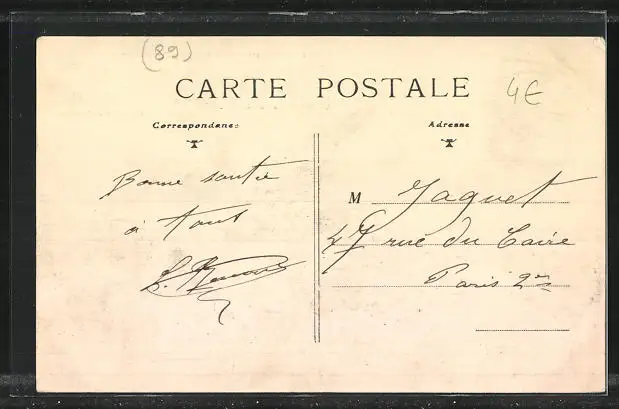 (89)
CARTE POSTALE
4€
Correspondance
Adresse
Bonne santé
à tous
M Jaquet
47 rue du Caire
Paris 2me